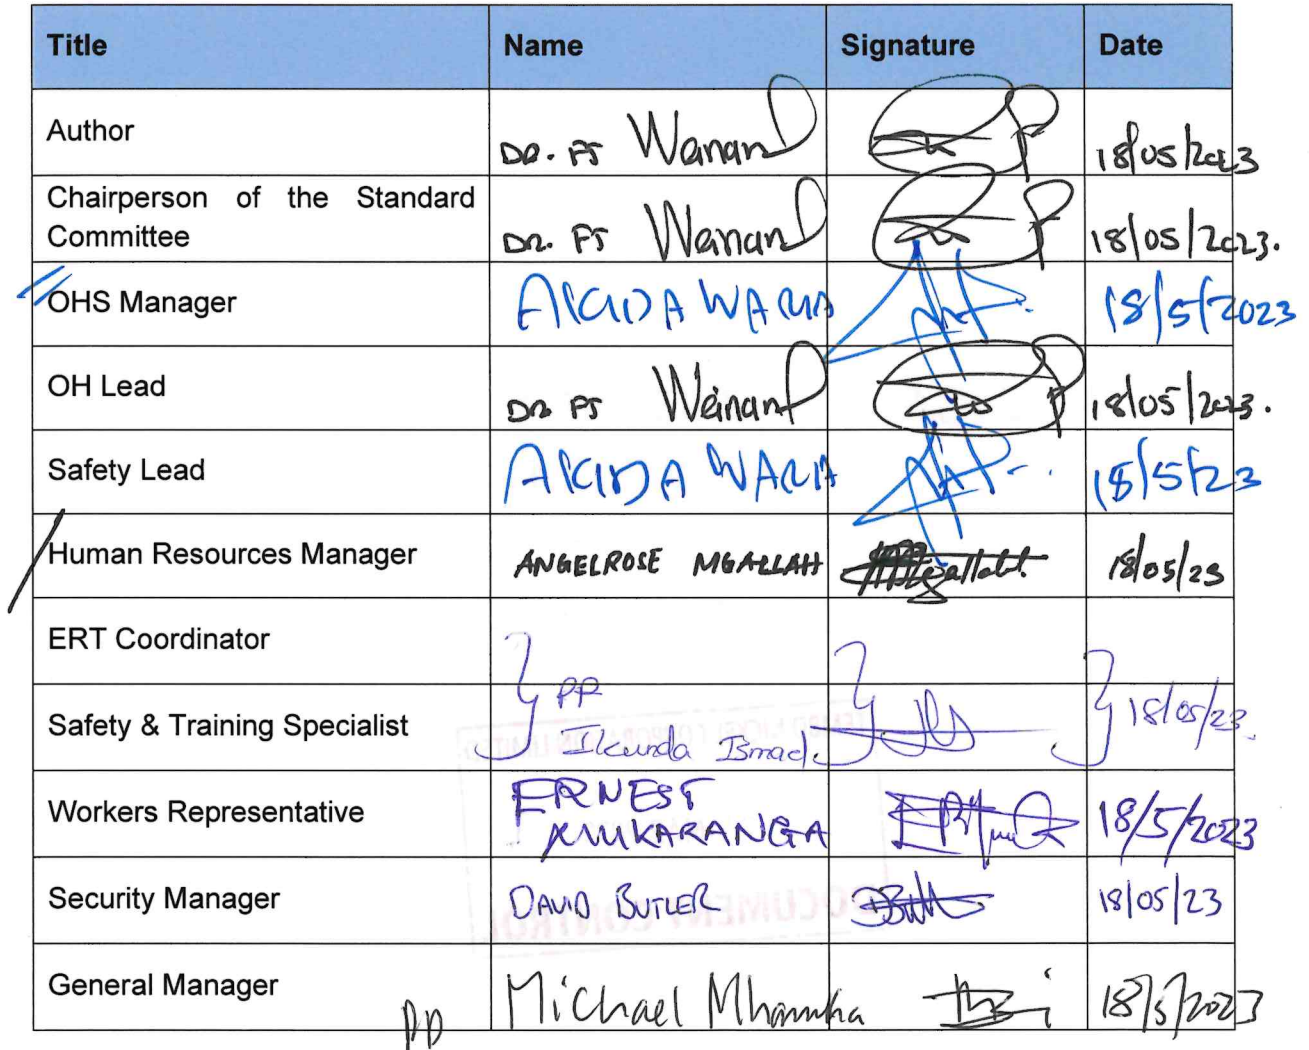 Title Name Signature Date
Author DR. FJ Weinand 18/05/2023
Chairperson of the Standard
Committee DR. FJ Weinand 18/05/2023.
OHS Manager AKIDA WARIA 18/5/2023
OH Lead DR FJ Weinand 18/05/2023.
Safety Lead AKIDA WARIA 18/5/23
Human Resources Manager ANGELROSE MGALLAH 18/05/23
ERT Coordinator
PP
Safety & Training Specialist Ikunda Ismael. 18/05/23.
ERNEST
Workers Representative MUKARANGA 18/5/2023
Security Manager DAVID BUTLER 18/05/23
DOCUMENT CONTROL
General Manager pp Michael 18/5/2023